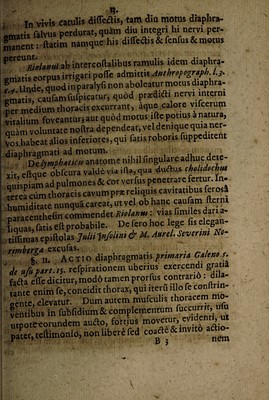 In vivis catulis dissectis, tam diu motus diaphra-
gmatis salvus perdurat, quàm diu integri hi nervi per-
manent: statim namque his dissectis & sensus & motus
pereunt.
Riolanus ab intercostalibus ramulis idem diaphra-
gmatis eorpus irrigari posse admittit Anthropograph. l. 3.
Unde, quod in paralysi non aboleatur motus diaphra-
gmatis, causam suspicatur, quòd prædicti nervi interni
per medium thoracis excurrant, àque calore viscerum
vitalium foveantur, aut quòd motus iste potius à natura,
quàm voluntate nostra dependeat, vel denique quia ner-
vos habeat alios inferiores, qui satis roboris suppeditent
diaphragmati ad motum.
De lymphaticis anatome nihil singulare adhuc dete-
xit, estque obscura valdè via ista, qua ductus chelidochus
quispiam ad pulmones & cor versus penetrare fertur. In-
terea cùm thoracis cavum præ reliquis cavitatibus serosâ
humiditate nunquã careat, ut vel ob hanc causam sterni
paracenthesin commendet Riolanus: vias similes dari a-
liquas, satis est probabile. De sero hoc lege sis elegan-
tissimas epistolas Julii Jasolini & M. Aurel. Severini No-
rimbergæ excusas.
§. 11. ACTIO diaphragmatis primaria Galeno 5.
de usu part. 15. respirationem uberius exercendi gratiâ
facta esse dicitur, modò tamen prorsus contrariò: dila-
tante enim se, concidit thorax, qui iterũ illo se constrin-
gente, elevatur. Dum autem musculis thoracem mo-
ventibus in subsidium & complementum succurrit, usu
utpote eorundem aucto, fortius movetur, evidenti, ut
patet, testimonio, non liberè sed coactè & invitò actio-
B 3 nem